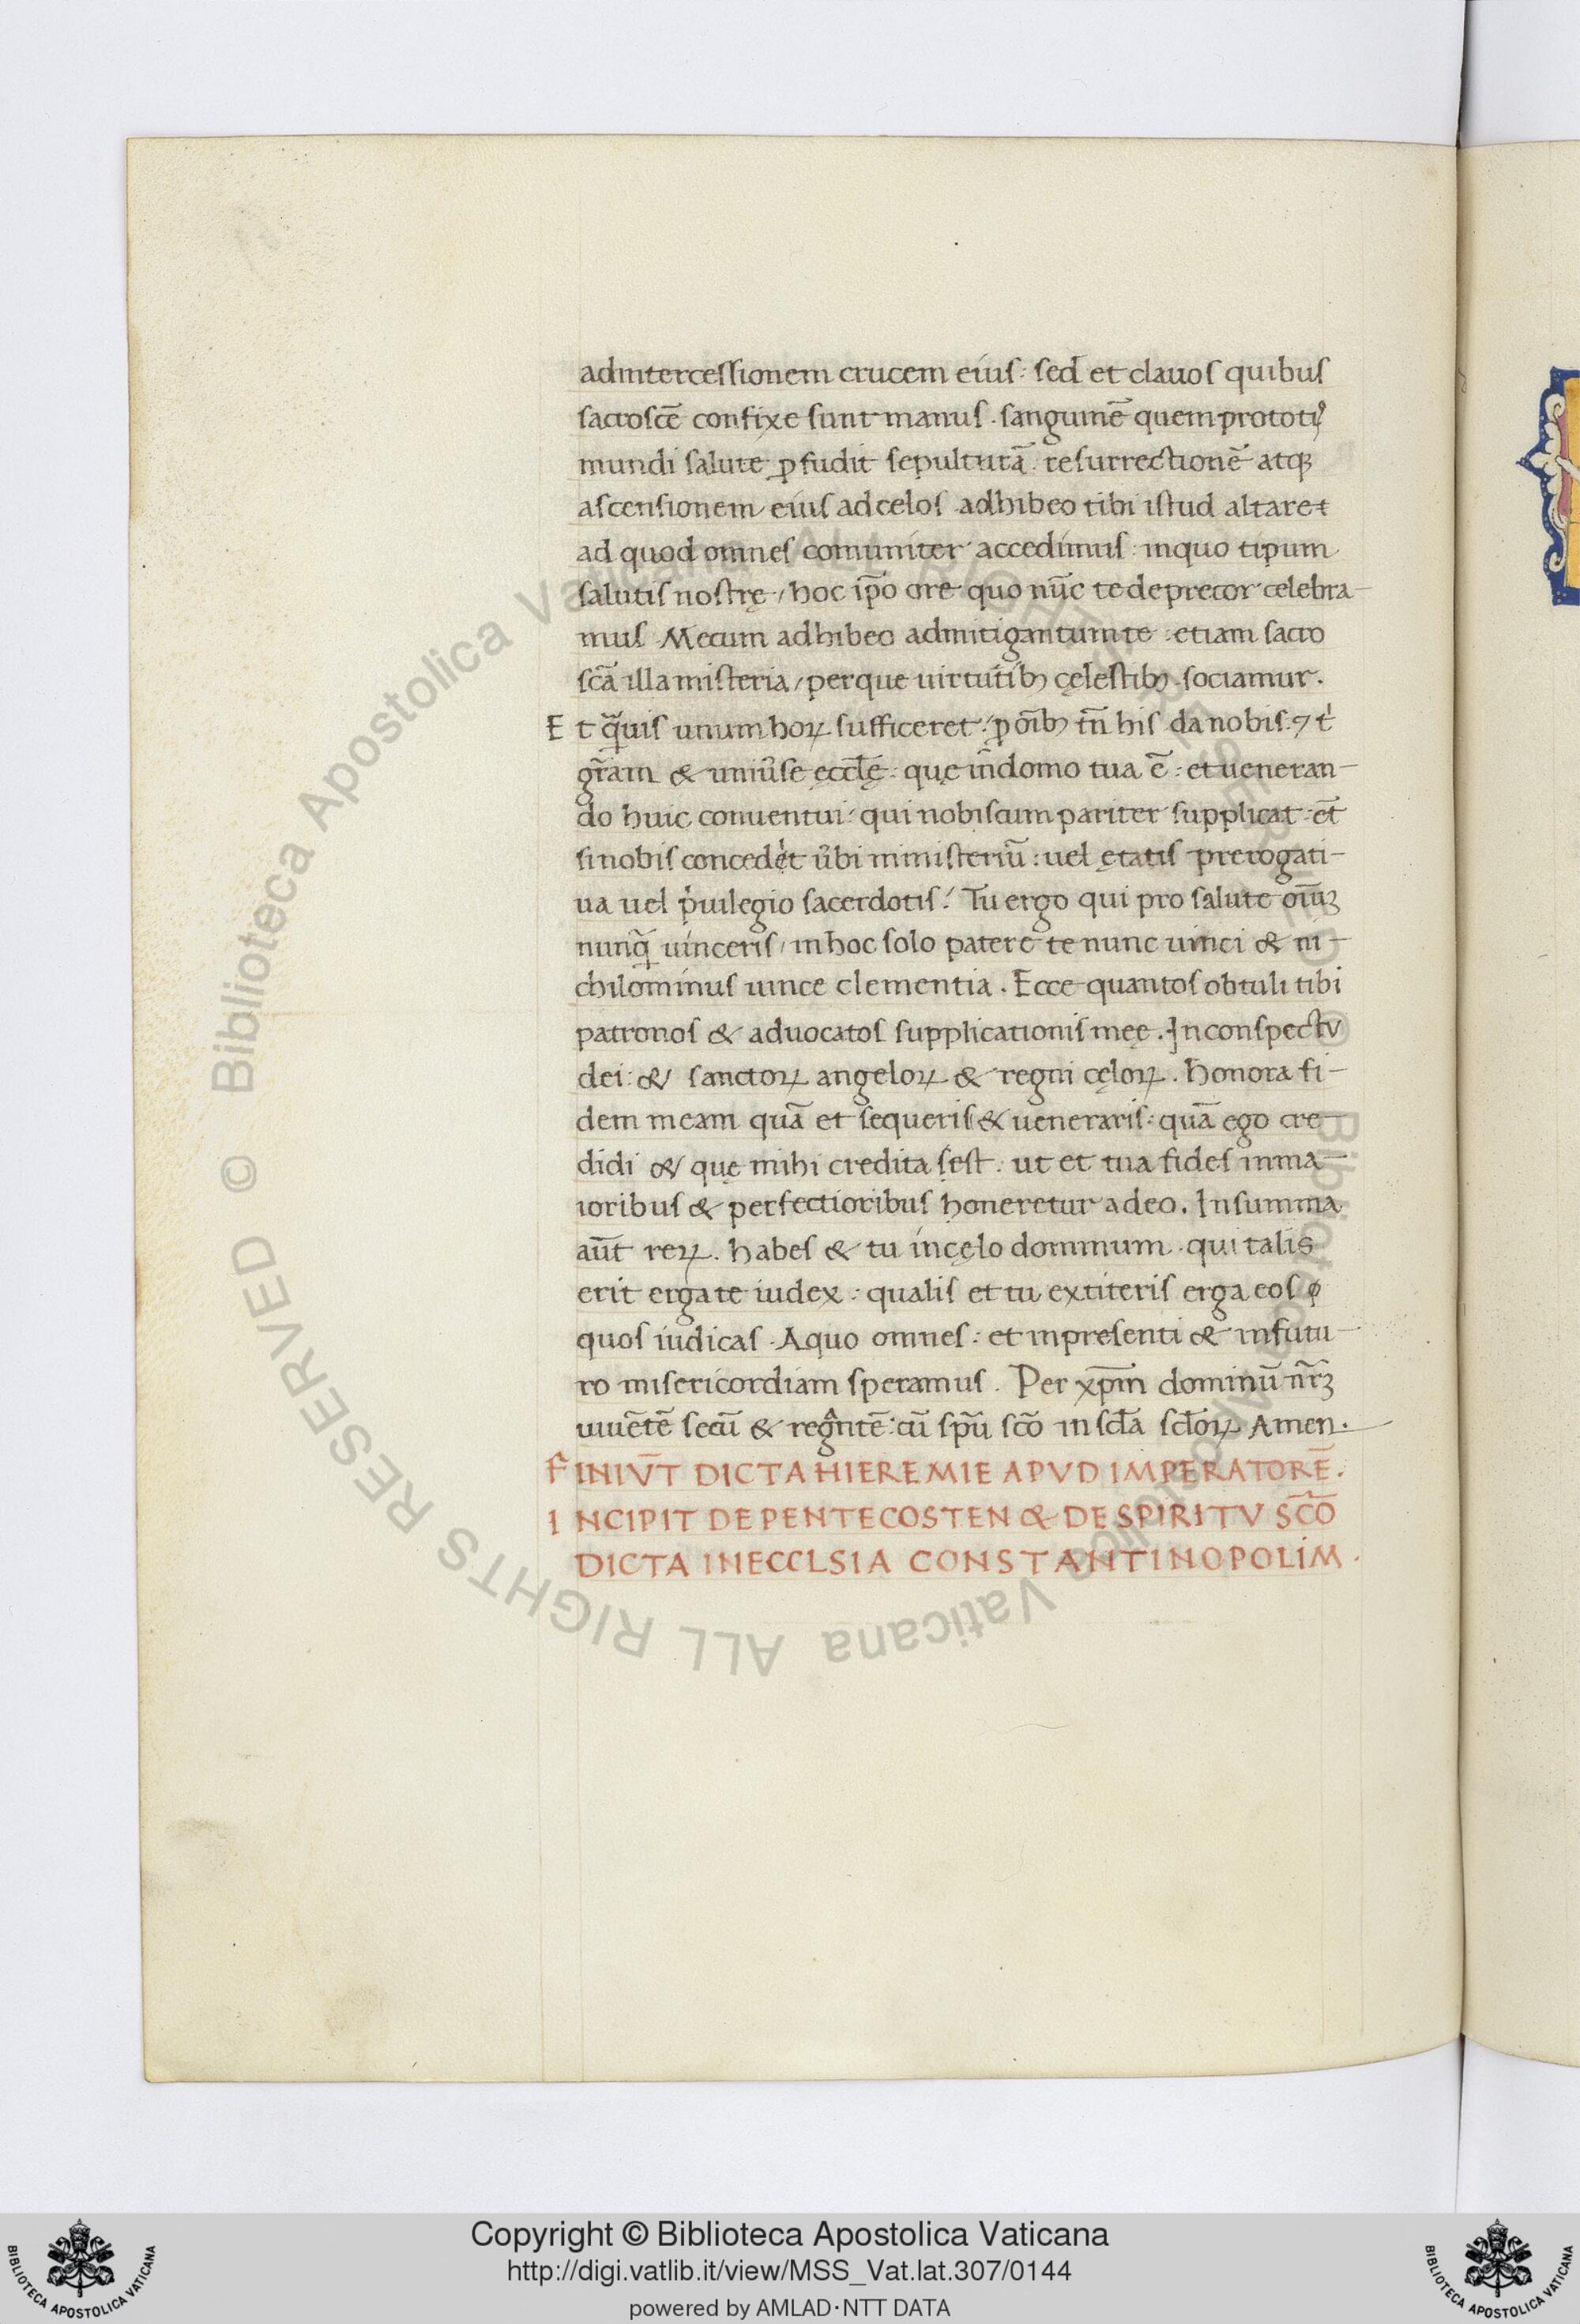 adintercessionem crucem eius: sed et clauos quibus
sacroscē confixe sunt manus. sanguinē quem prototiꝰ
mundi salute ꝑfudit sepulturā. resurrectionē atqꝫ
ascensionem eius ad celos. adhibeo tibi istud altare
ad quod omnes comuniter accedimus: inquo tipum
salutis nostrę / hoc ip̄o ore quo nūc te deprecor celebra-
mus. Mecum adhibeo admitigantum te: etiam sacro
scā illa misteria / per que uirtutibꝫ cęlestibꝫ sociamur.
Et q̄uis unum hoꝝ sufficeret: ꝑ oībꝫ tn̄ his da nobis: ⁊ t
gr̄am & uniūse ęccl̄ę: quę in domo tua ē: et ueneran-
do huic conuentui: qui nobiscum pariter supplicat: et
si nobis concedet ubi ministeriū: uel ętatis prerogati-
ua uel p̍uilegio sacerdotis! Tu ergo qui pro salute oīuꝫ
nunq̄ uinceris / in hoc solo patere te nunc uinci & ni-
chilominus uince clementia. Ecce quantos obtuli tibi
patronos & aduocatos supplicationis meę. In conspectu
dei: & sanctoꝝ angeloꝝ & regni cęloꝝ. honora fi-
dem meam quā et sequeris & ueneraris: quā ego cre-
didi & quę mihi credita est. ut et tua fides in ma-
ioribus & perfectioribus honeretur a deo. In summa
aūt reꝝ. habes & tu in cęlo dominum. qui talis
erit erga te iudex: qualis et tu extiteris erga eos
quos iudicas. A quo omnes: et in presenti & in futu-
ro misericordiam speramus. Per xp̄m dominū nr̄ꝫ
uiuētē secū & regnātē: cū sp̄u scō in scl̄a scl̄oꝝ Amen.
FINIV̄T DICTA HIEREMIE APVD IMPERATORĒ.
INCIPIT DE PENTECOSTEN & DE SPIRITV SC̄O
DICTA IN ECCLSIA CONSTANTINOPOLIM.
© Biblioteca Apostolica Vaticana ALL RIGHTS RESERVED © Biblioteca Apostolica Vaticana ALL RIGHTS RESERVED
Copyright © Biblioteca Apostolica Vaticana
http://digi.vatlib.it/view/MSS_Vat.lat.307/0144
powered by AMLAD·NTT DATA
BIBLIOTECA APOSTOLICA VATICANA
BIBLIOTECA APOSTOLICA VATICANA